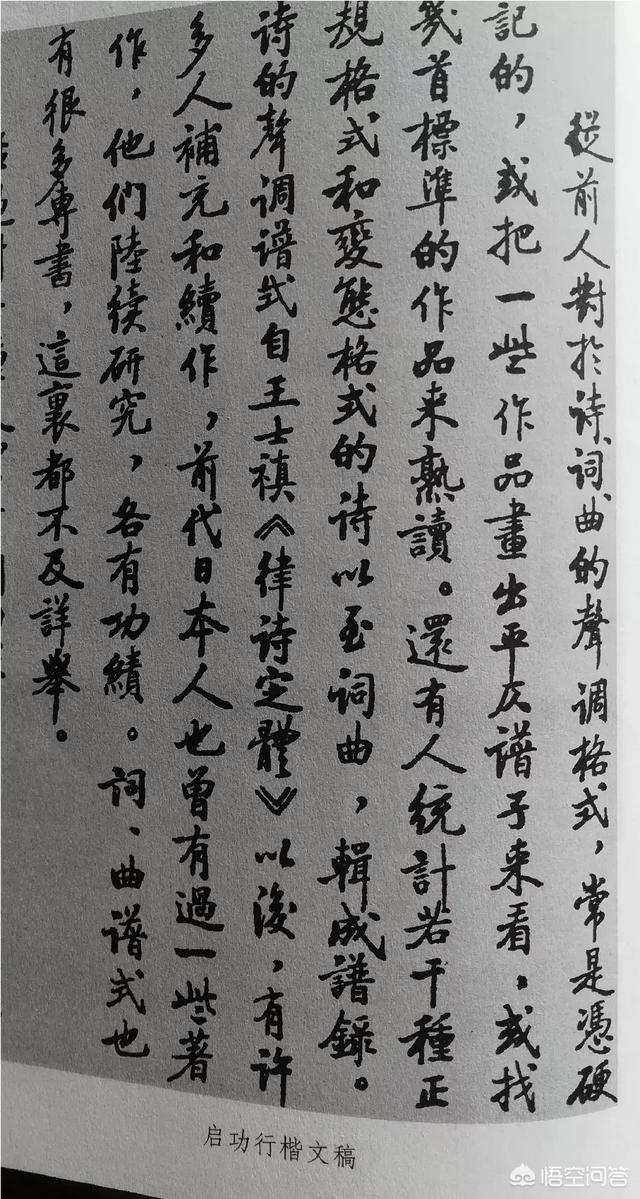 從前人對於诗、词曲的聲调格式，常是憑硬
記的，或把一些作品畫出平仄谱子来看，或找
幾首標準的作品来熟讀。還有人統計若干種正
規格式和變態格式的诗以至词曲，輯成譜録。
诗的聲调谱式自王士禛《律诗定體》以後，有许
多人補充和續作，前代日本人也曾有過一些著
作，他们陸续研究，各有功績。词、曲谱式也
有很多專書，這裏都不及詳舉。
启功行楷文稿
悟空问答